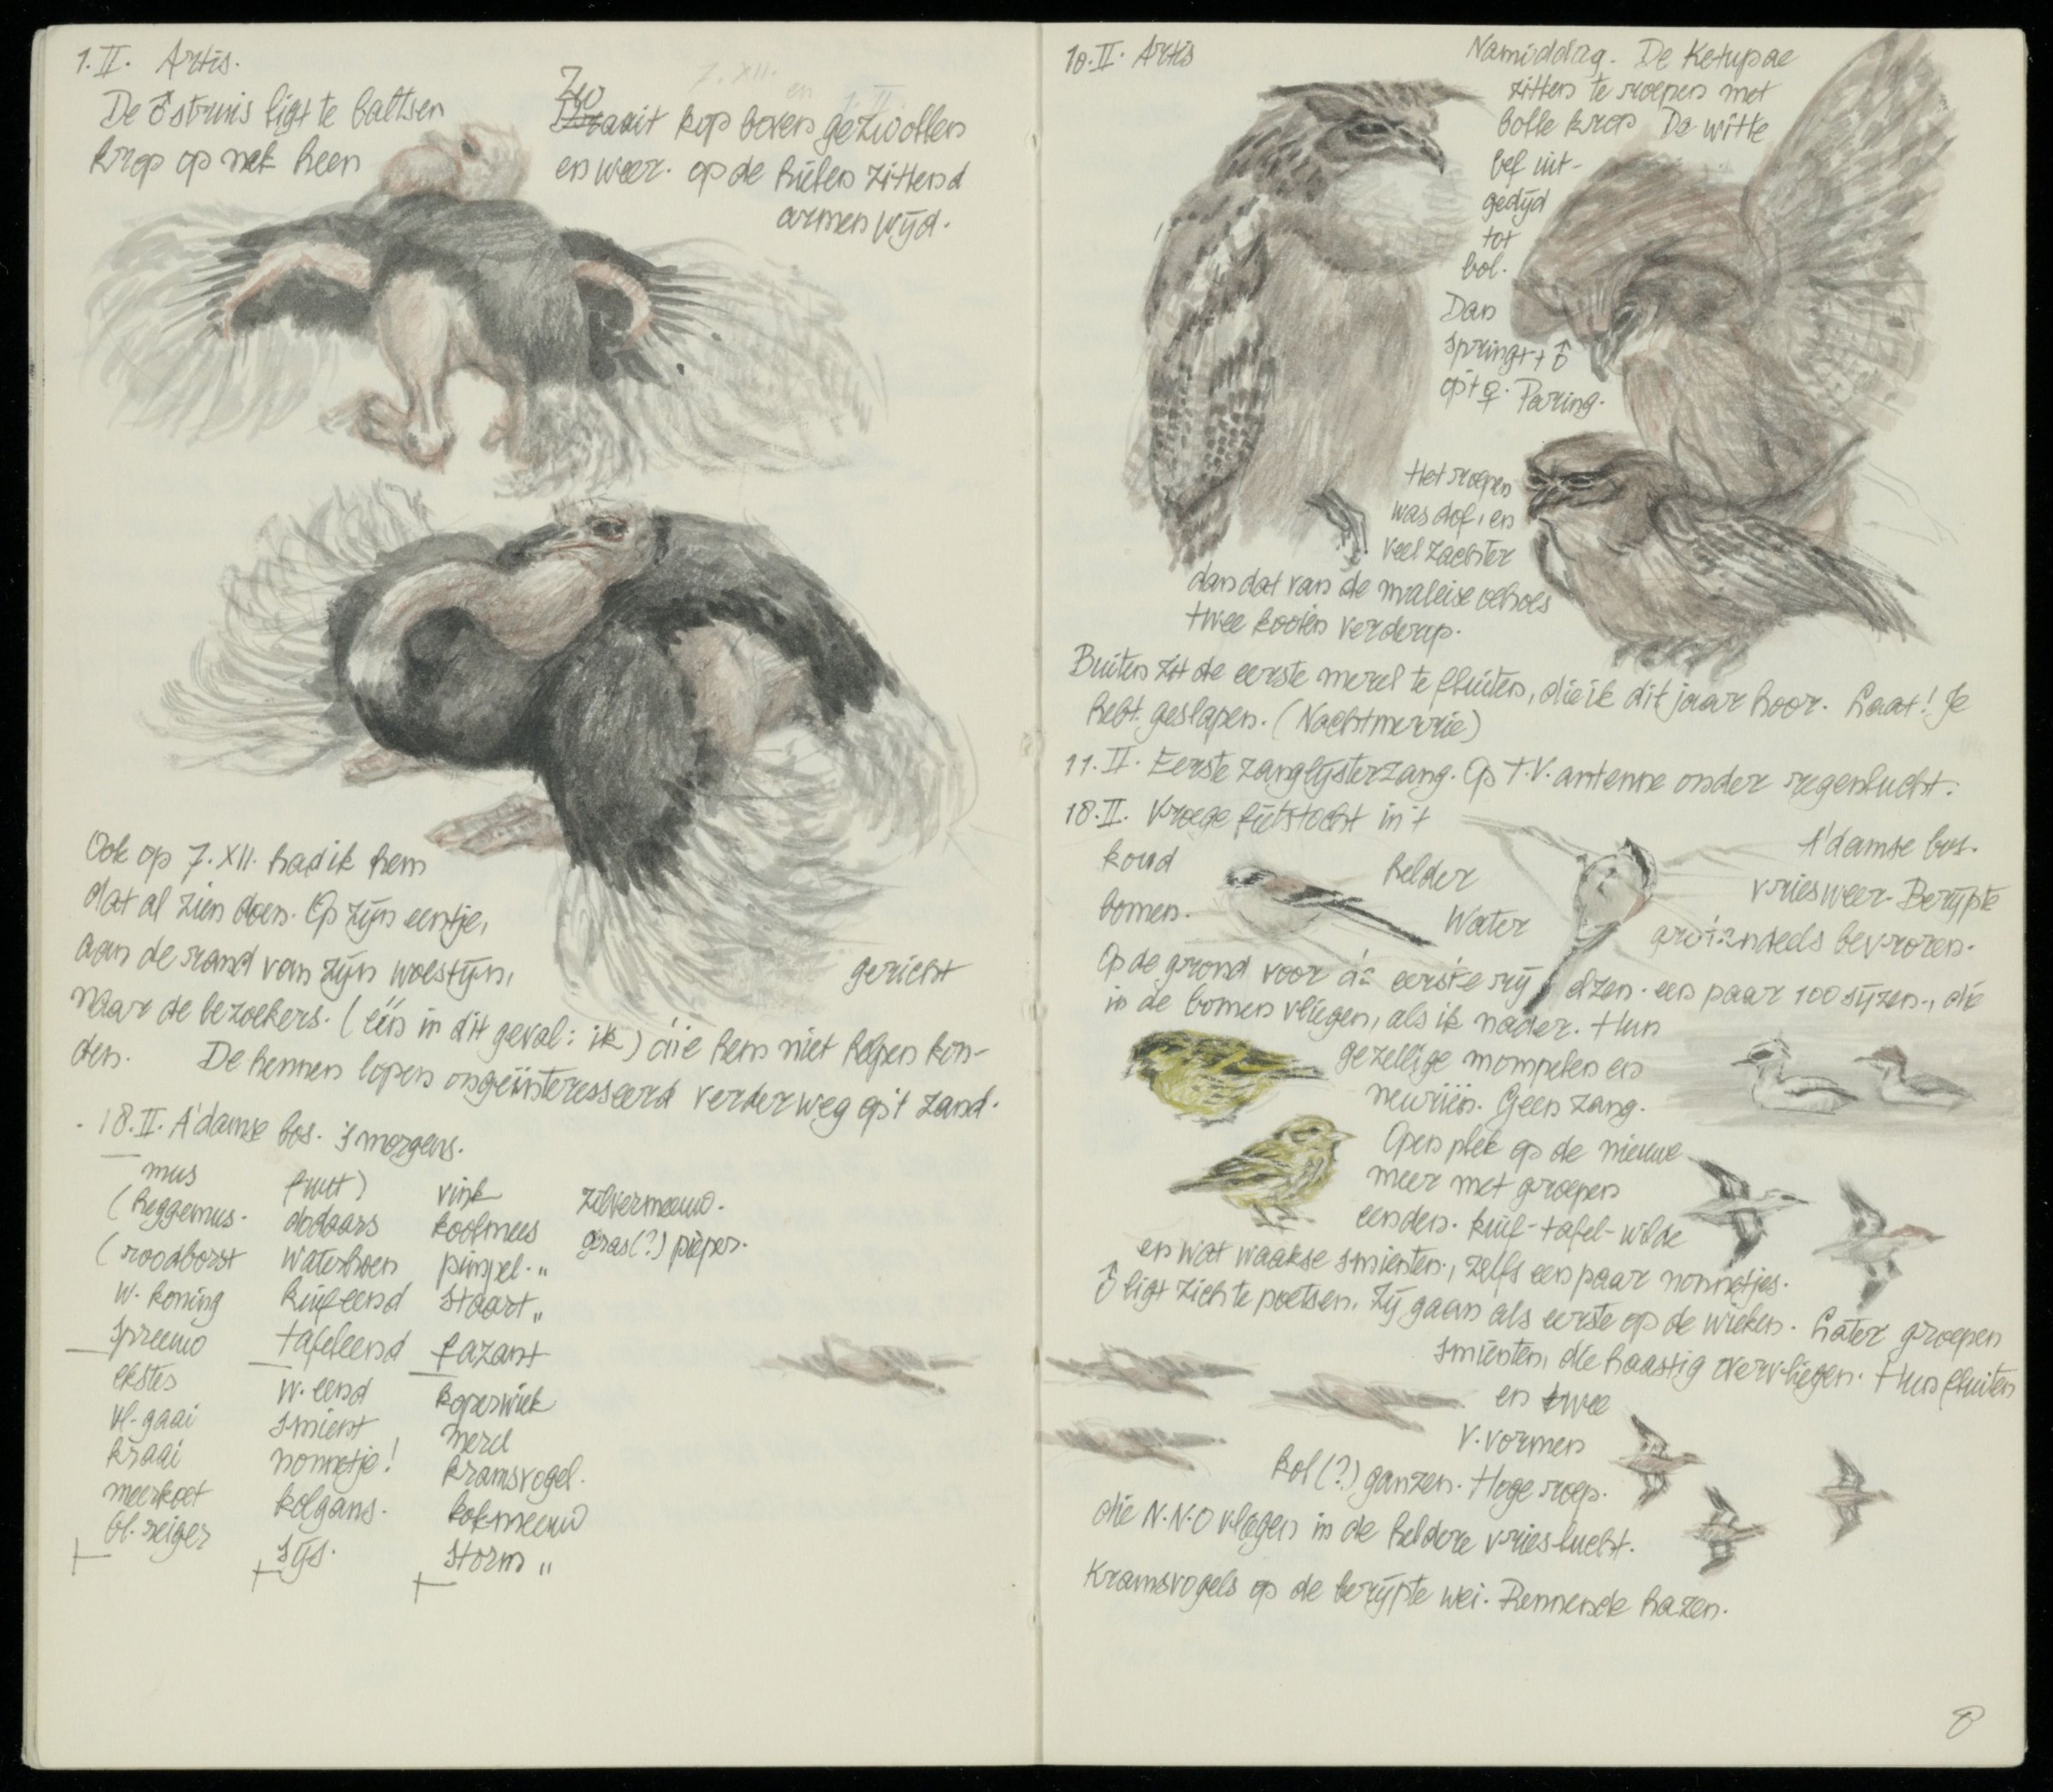 1.II. Artis.
De ♂ struis ligt te baltsen
krop op nek heen
7.XII.
en 1.II
Zwaait kop boven gezwollen
en weer. op de hielen zittend
armen wijd.
Ook op 7.XII. had ik hem
dat al zien doen. Op zijn eentje,
aan de rand van zijn woestijn, gericht
naar de bezoekers. (één in dit geval: ik) die hem niet helpen kon-
den. De hennen lopen ongeïnteresseerd verder weg op 't zand.
18.II. A'damse bos. 's morgens.
mus
(heggemus.
(roodborst
w. koning
spreeuw
ekster
vl. gaai
kraai
meerkoet
bl. reiger
fuut)
dodaars
waterhoen
kuifeend
tafeleend
w. eend
smient
nonnetje!
kolgans.
sijs.
vink
koolmees
pimpel. "
staart "
fazant
koperwiek
merel
kramsvogel.
kokmeeuw
storm "
zilvermeeuw.
gras(?) pieper.
10.II. Artis
Namiddag. De Ketupae
zitten te roepen met
bolle krop De witte
bef uit-
gedijd
tot
bol.
Dan
springt 't ♂
op 't ♀. Paring.
Het roepen
was dof, en
veel zachter
dan dat van de maleise oehoes
twee kooien verderop.
Buiten zit de eerste merel te fluiten, die ik dit jaar hoor. Laat! Je
hebt geslapen. (Nachtmerrie)
11.II. Eerste zanglijsterzang. Op T.V. antenne onder regenlucht.
18.II. Vroege fietstocht in 't A'damse bos.
koud helder vriesweer. Berijpte
bomen. Water grotendeels bevroren.
Op de grond voor de eerste rij elzen. een paar 100 sijzen, die
in de bomen vliegen, als ik nader. Hun
gezellige mompelen en
neuriën. Geen zang.
Open plek op de nieuwe
meer met groepen
eenden. kuif-tafel-wilde
en wat waakse smienten, zelfs een paar nonnetjes.
♂ ligt zich te poetsen. Zij gaan als eerste op de wieken. Later groepen
smienten, die haastig overvliegen. Hun fluiten
en twee
V.vormen
kol(?)ganzen. Hoge roep.
die N.N.O vlogen in de heldere vrieslucht.
Kramsvogels op de berijpte wei. Rennende hazen.
8